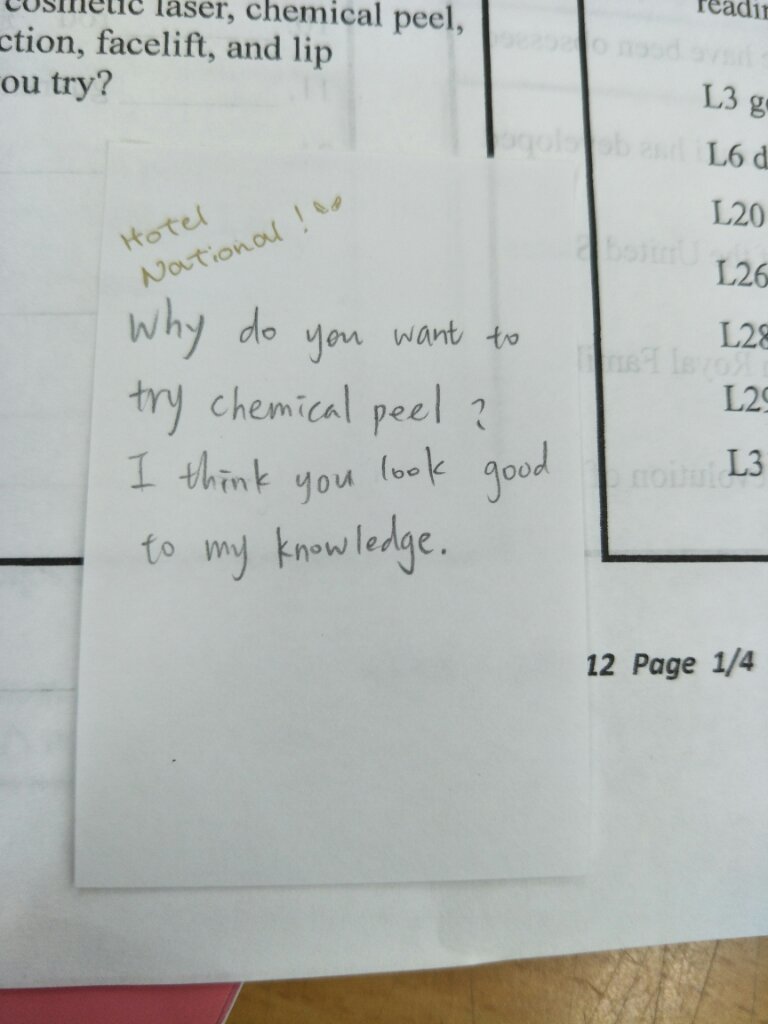 cosmetic laser, chemical peel,
ction, facelift, and lip
ou try?
readin
L3 g
L6 d
L20
L26
L28
L29
L3
Hotel
National!
Why do you want to
try chemical peel?
I think you look good
to my knowledge.
12 Page 1/4